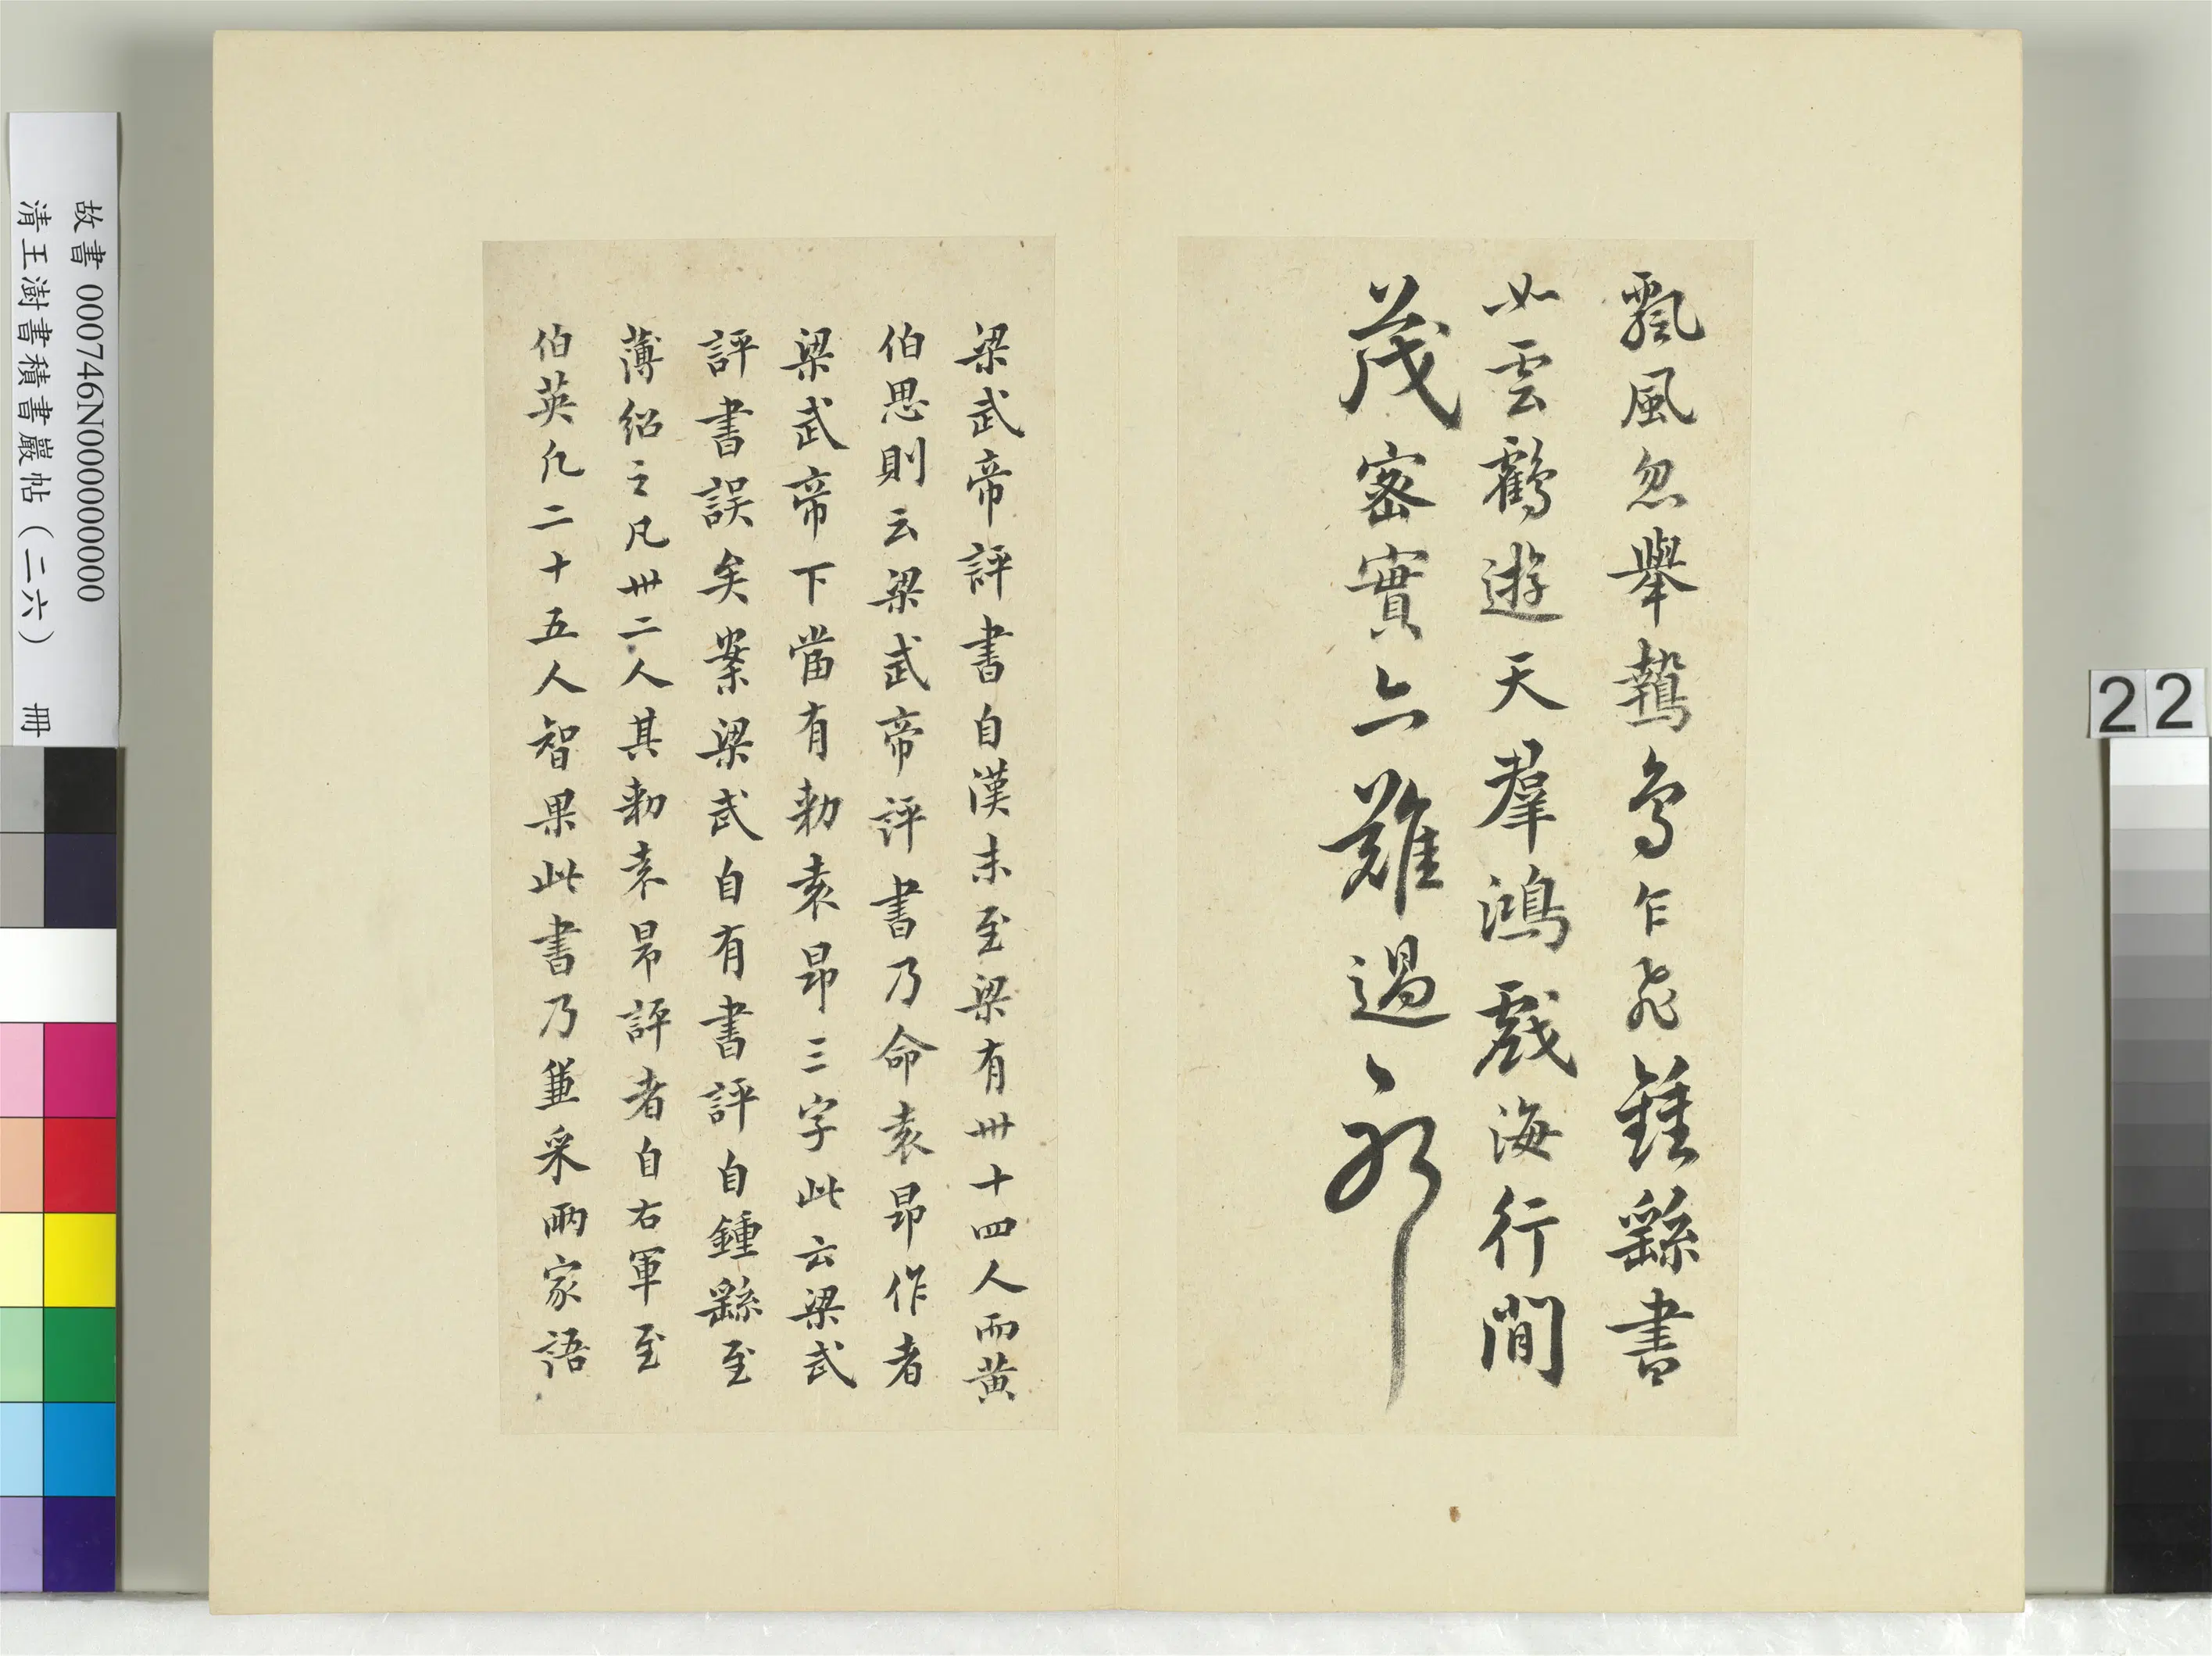 飄風忽舉鷙鳥乍飛鍾繇書
如雲鶴遊天羣鴻戲海行間
茂密實亦難過
梁武帝評書自漢末至梁有卅十四人而黃
伯思則云梁武帝評書乃命袁昂作者
梁武帝下當有勅袁昂三字此云梁武
評書誤矣案梁武自有書評自鍾繇至
薄紹之凡卅二人其勅袁昂評者自右軍至
伯英凡二十五人智果此書乃兼采兩家語
故書 000746N000000000
清王澍書積書巖帖(二六) 冊
22